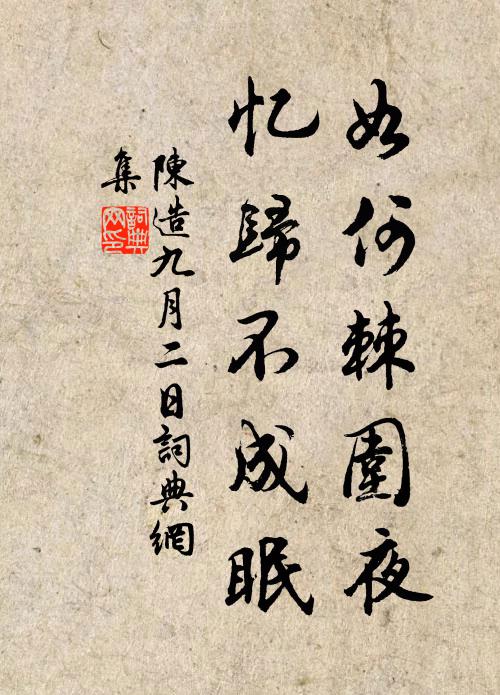 如何棘圍夜
忆歸不成眠
陳造九月二日詞典網
集
詞典网印